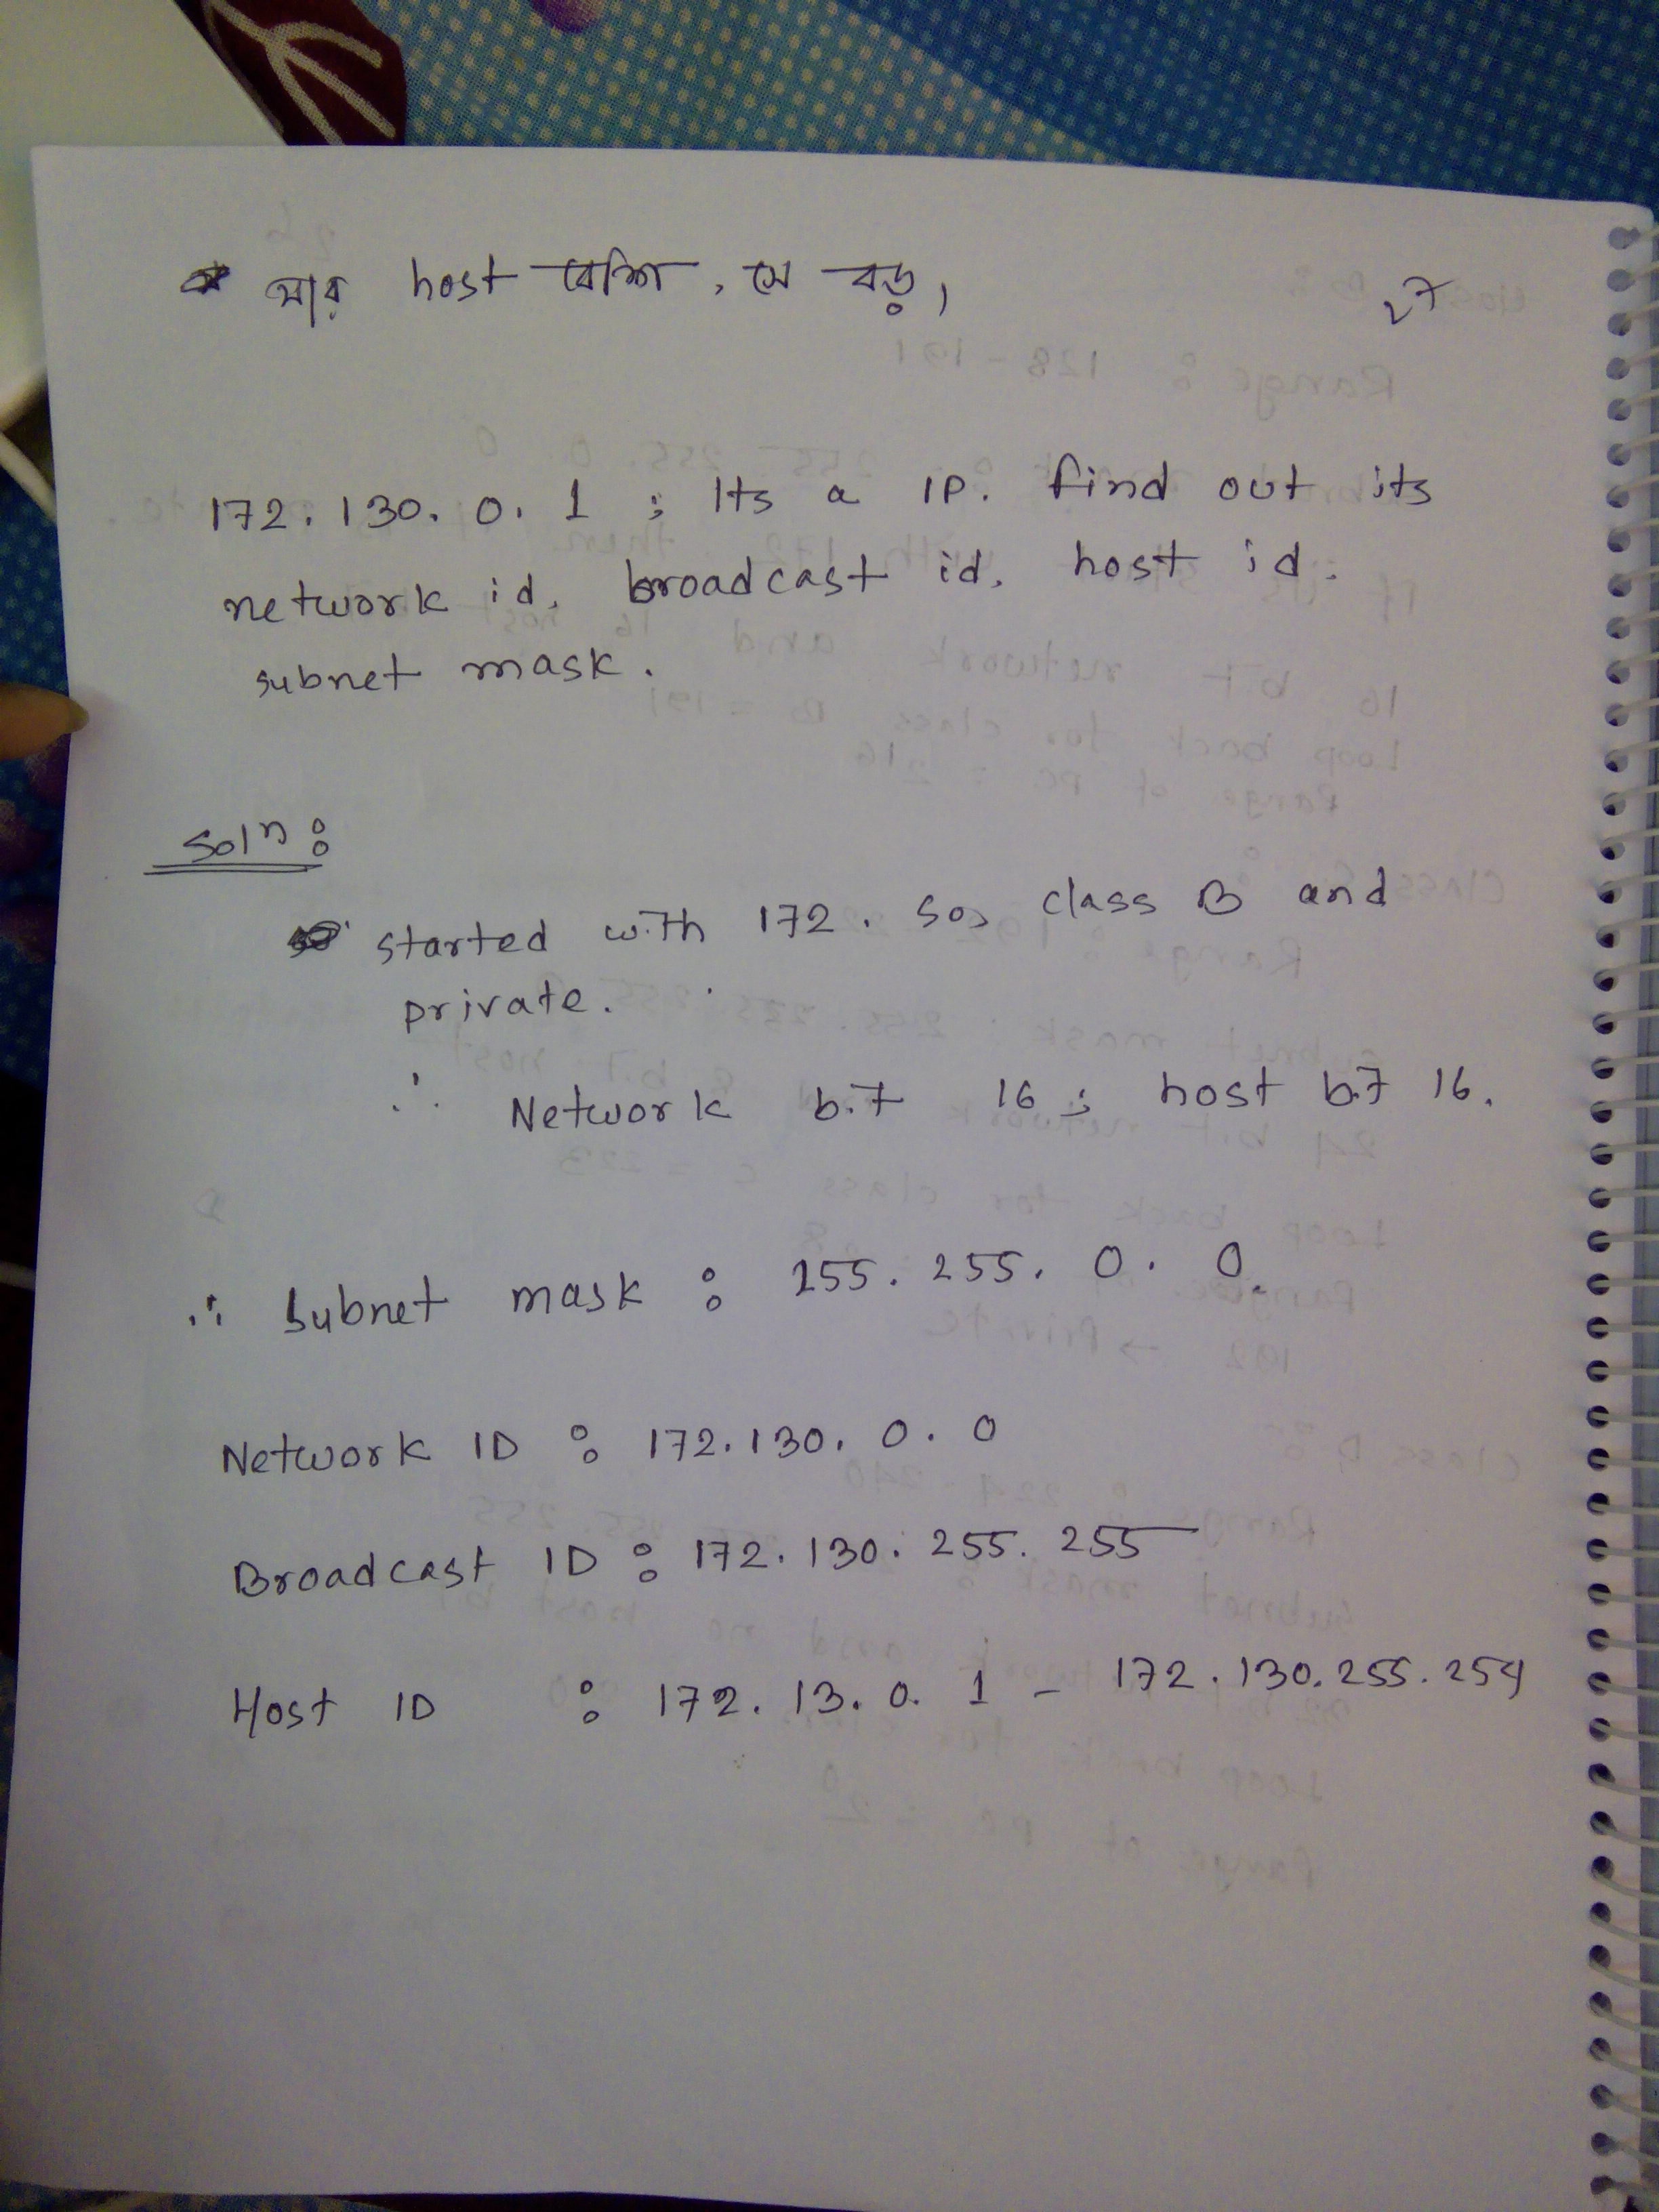 * যার host বেশি, সে বড়,
27
172.130.0.1 ; Its a IP. find out its
network id, broadcast id, host id.
subnet mask.
Solⁿ:
started with 172. so, class B and
private.
∴ Network bit 16; host bit 16.
∴ Subnet mask : 255.255.0.0.
Network ID : 172.130.0.0
Broadcast ID : 172.130.255.255
Host ID : 172.13.0.1 - 172.130.255.254